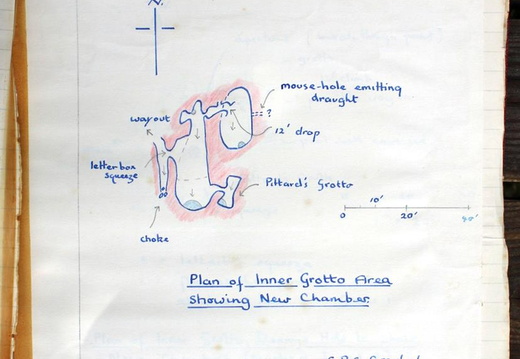 N.
mouse-hole emitting
draught
?
way out
12' drop
letterbox
squeeze
Pittard's Grotto
10'
0
20'
40'
choke
Plan of Inner Grotto Area
showing New Chamber.